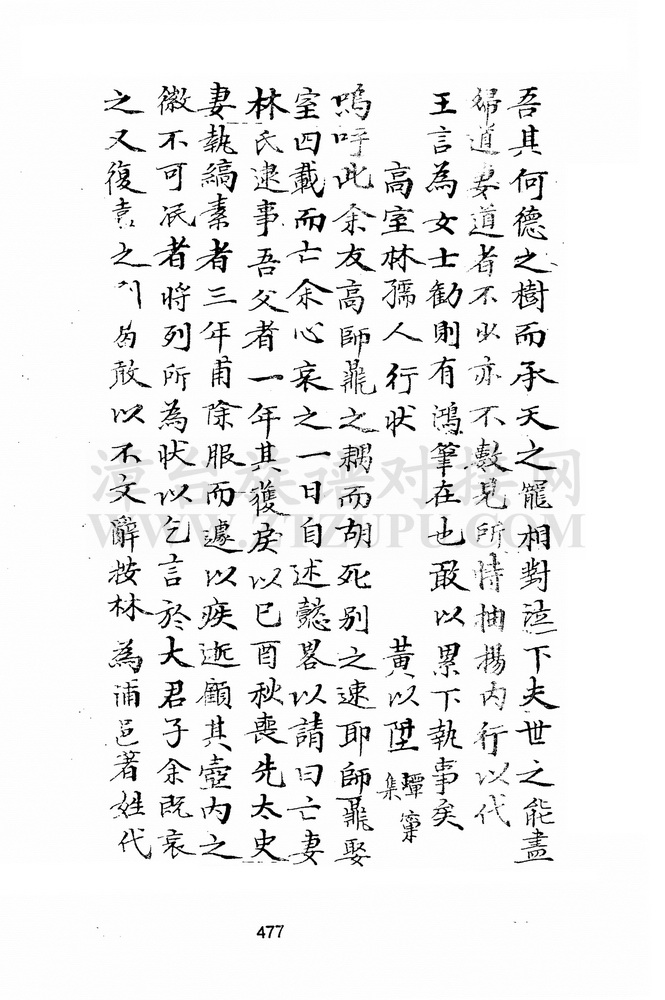 吾其何德之樹而承天之寵相對泣下夫世之能盡
婦道妻道者不少亦不數見所恃抽揚內行以代
王言為女士勸則有鴻筆在也敢以累下執事矣
高室林孺人行狀 黃以陞 蟬窠集
嗚呼此余友高師鼐之耦而胡死別之速耶師鼐娶
室四載而亡余心哀之一日自述懿畧以請曰亡妻
林氏逮事吾父者一年其獲戾以已酉秋喪先太史
妻執縞素者三年甫除服而遽以疾逝顧其壼內之
徽不可泯者將列所為狀以乞言於大君子余既哀
之又復之敢以不文辭按林為浦邑著姓代
漳台族谱对接网
WWW.ZTZUPU.COM
477